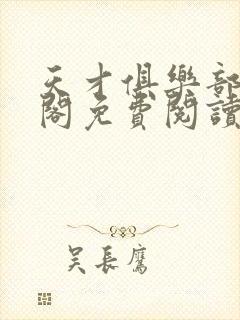 天才俱樂部
閣免費閱讀
吴長鷹